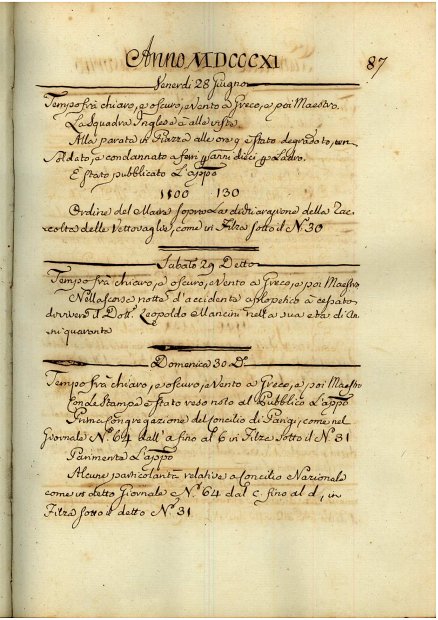 Anno MDCCCXI
87
Venerdi 28 Giugno
Tempo frà chiaro, e oscuro, e vento a Greco, e poi Maestro.
La Squadra Inglese è alle viste
Alla parata in Piazza alle ore 9 è stato degradato, un
Soldato, e condannato a ferri p anni dieci, p Ladro.
È stato pubblicato L'appo
1100 130
Ordine del Maire sopra La dichiarazione della Rac-
colta delle Vettovaglie, come in Filza sotto il N.º 30
Sabato 29 Detto
Tempo frà chiaro, e oscuro, e vento a Greco, e poi Maestro
Nella scorsa notte d'accidente apopletico à cessato
di vivere il Dott.r Leopoldo Mancini nella sua età di An-
ni quaranta
Domenica 30 D.o
Tempo frà chiaro, e oscuro, e vento a Greco, e poi Maestro
Con le Stampe è stato reso noto al Pubblico L'appo
Prima Congregazione del Concilio di Parigi, come nel
Giornale N.º 64 dall' a fino al 6 in Filza sotto il N.º 31
Parimente L'appo
Alcune particolarità relative a Concilio Nazionale
come in detto Giornale N.º 64 dal c. fino al d, in
Filza sotto il detto N.º 31